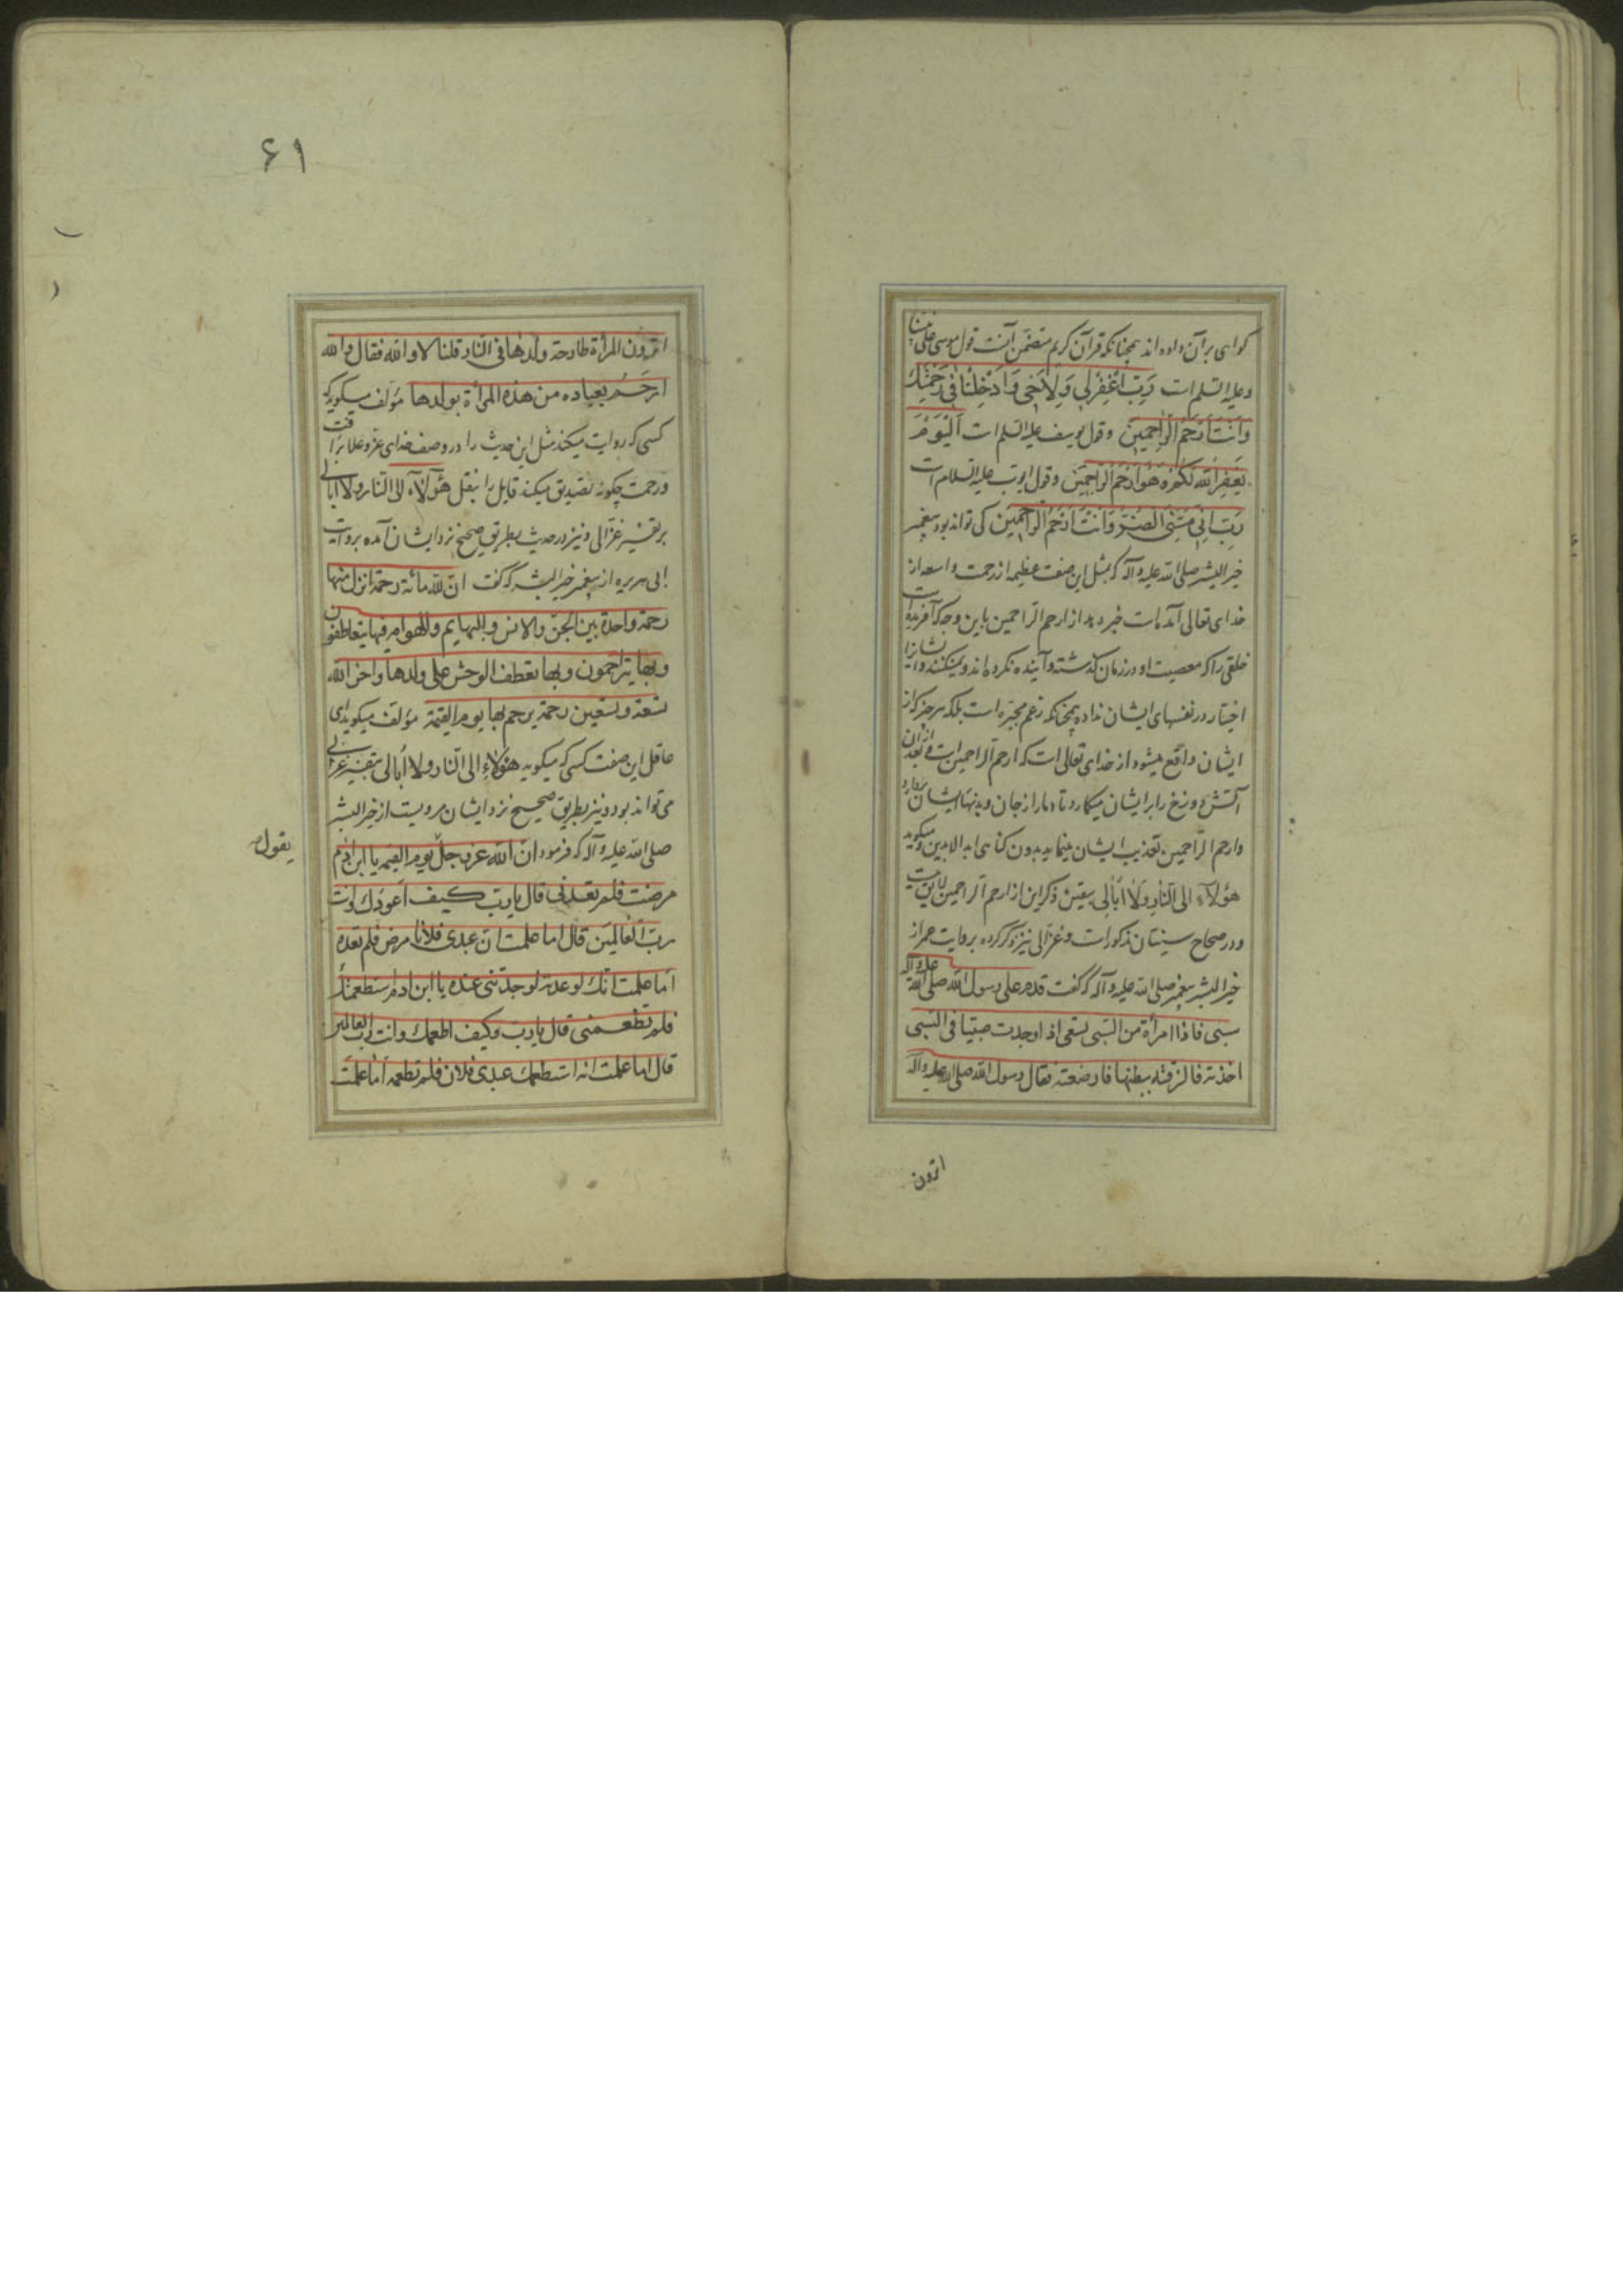 کواهی بر آن داده اند همچنانکه قرآن کریم متضمن آنست قول موسی علی نبینا
وعلیه السلم است رَبِّ اغْفِرْلِي وَلِاَخِي وَاَدْخِلْنَا فِي رَحْمَتِكَ
وَاَنْتَ اَرْحَمُ الرَّاحِمِينَ وقول یوسف علیه السلم است اَلْیَوْمَ
یَغْفِرُ اللّٰه لَكُمْ وَهُوَ اَرْحَمُ الرَّاحِمِین وقول ایوب علیه السلام است
رَبِّ اِنِّي مَسَّنِيَ الضُّرُّ وَاَنْتَ اَرْحَمُ الرَّاحِمِین کی تواند بود پیغمبر
خیر البشر صلی الله علیه وآله که بمثل این صفت عظیمه از رحمت واسعه از
خدای تعالی آمده است خبر دهد از ارحم الراحمین باین وجه که آفریده است
خلقی را که معصیت او در زمان گذشته و آینده نکرده اند و نمیکنند و ایشانرا
اختیار در نفسهای ایشان نداده همچنانکه زعم مجبره است بلکه هر چیز که از
ایشان واقع میشود از خدای تعالی است که ارحم الراحمین است بعد از آن
آتش دوزخ را بر ایشان میکمارد تا دمار از جان و بدنهاء ایشان برآرد
وارحم الراحمین تعذیب ایشان مینماید بدون کناهی ابد الابدین و میکوید
هؤلاء الی النار ولا اُبالی بیقین ذکر این از ارحم الراحمین لایق نیست
و در صحاح سنیان مذکور است و غزالی نیز ذکر کرده بروایت عمر از
خیر البشر پیغمبر صلی الله علیه وآله که گفت قدم علی رسول الله صلی الله علیه وآله
سبی فاذا امرأة من السبی تسعی اذا وجدت صبیا فی السبی
اخذته فالزقته ببطنها فارضعته فقال رسول الله صلی الله علیه وآله
اترون
۶۱
اترون المرأة طارحة ولدها فی النار قلنا لا والله فقال والله
ارحم بعباده من هذه المرأة بولدها مؤلف میکوید که
کسی که روایت میکند مثل این حدیث را در وصف خدای عزوعلا برأفت
ورحمت چکونه تصدیق میکند قایل را بنقل هؤلاء الی النار ولا ابالی
بر تفسیر غزالی و نیز در حدیث بطریق صحیح نزد ایشان آمده بروایت
ابی هریره از پیغمبر خیر البشر که کفت ان لله مائة رحمة انزل منها
رحمة واحدة بین الجن والانس والبهایم والهوام فیها یتعاطفون
وبها یتراحمون وبها تعطف الوحش علی ولدها واخر الله
تسعة وتسعین رحمة یرحم بها یوم القیمة مؤلف میکوید ای
عاقل این صفت کسی که میکوید هؤلاء الی النار ولا اُبالی بتفسیر غزالی
می تواند بود و نیز بطریق صحیح نزد ایشان مرویست از خیر البشر
صلی الله علیه وآله که فرمود ان الله عز وجل یوم القیمه یا ابن ادم
یقول
مرضت فلم تعدنی قال یارب کیف اعودک وانت
رب العالمین قال اما علمت ان عبدی فلانا مرض فلم تعده
اما علمت انک لو عدته لوجدتنی عنده یا ابن ادم استطعمتك
فلم تطعمنی قال یارب وکیف اطعمك وانت رب العالمین
قال اما علمت انه استطعمك عبدی فلان فلم تطعمه اما علمت